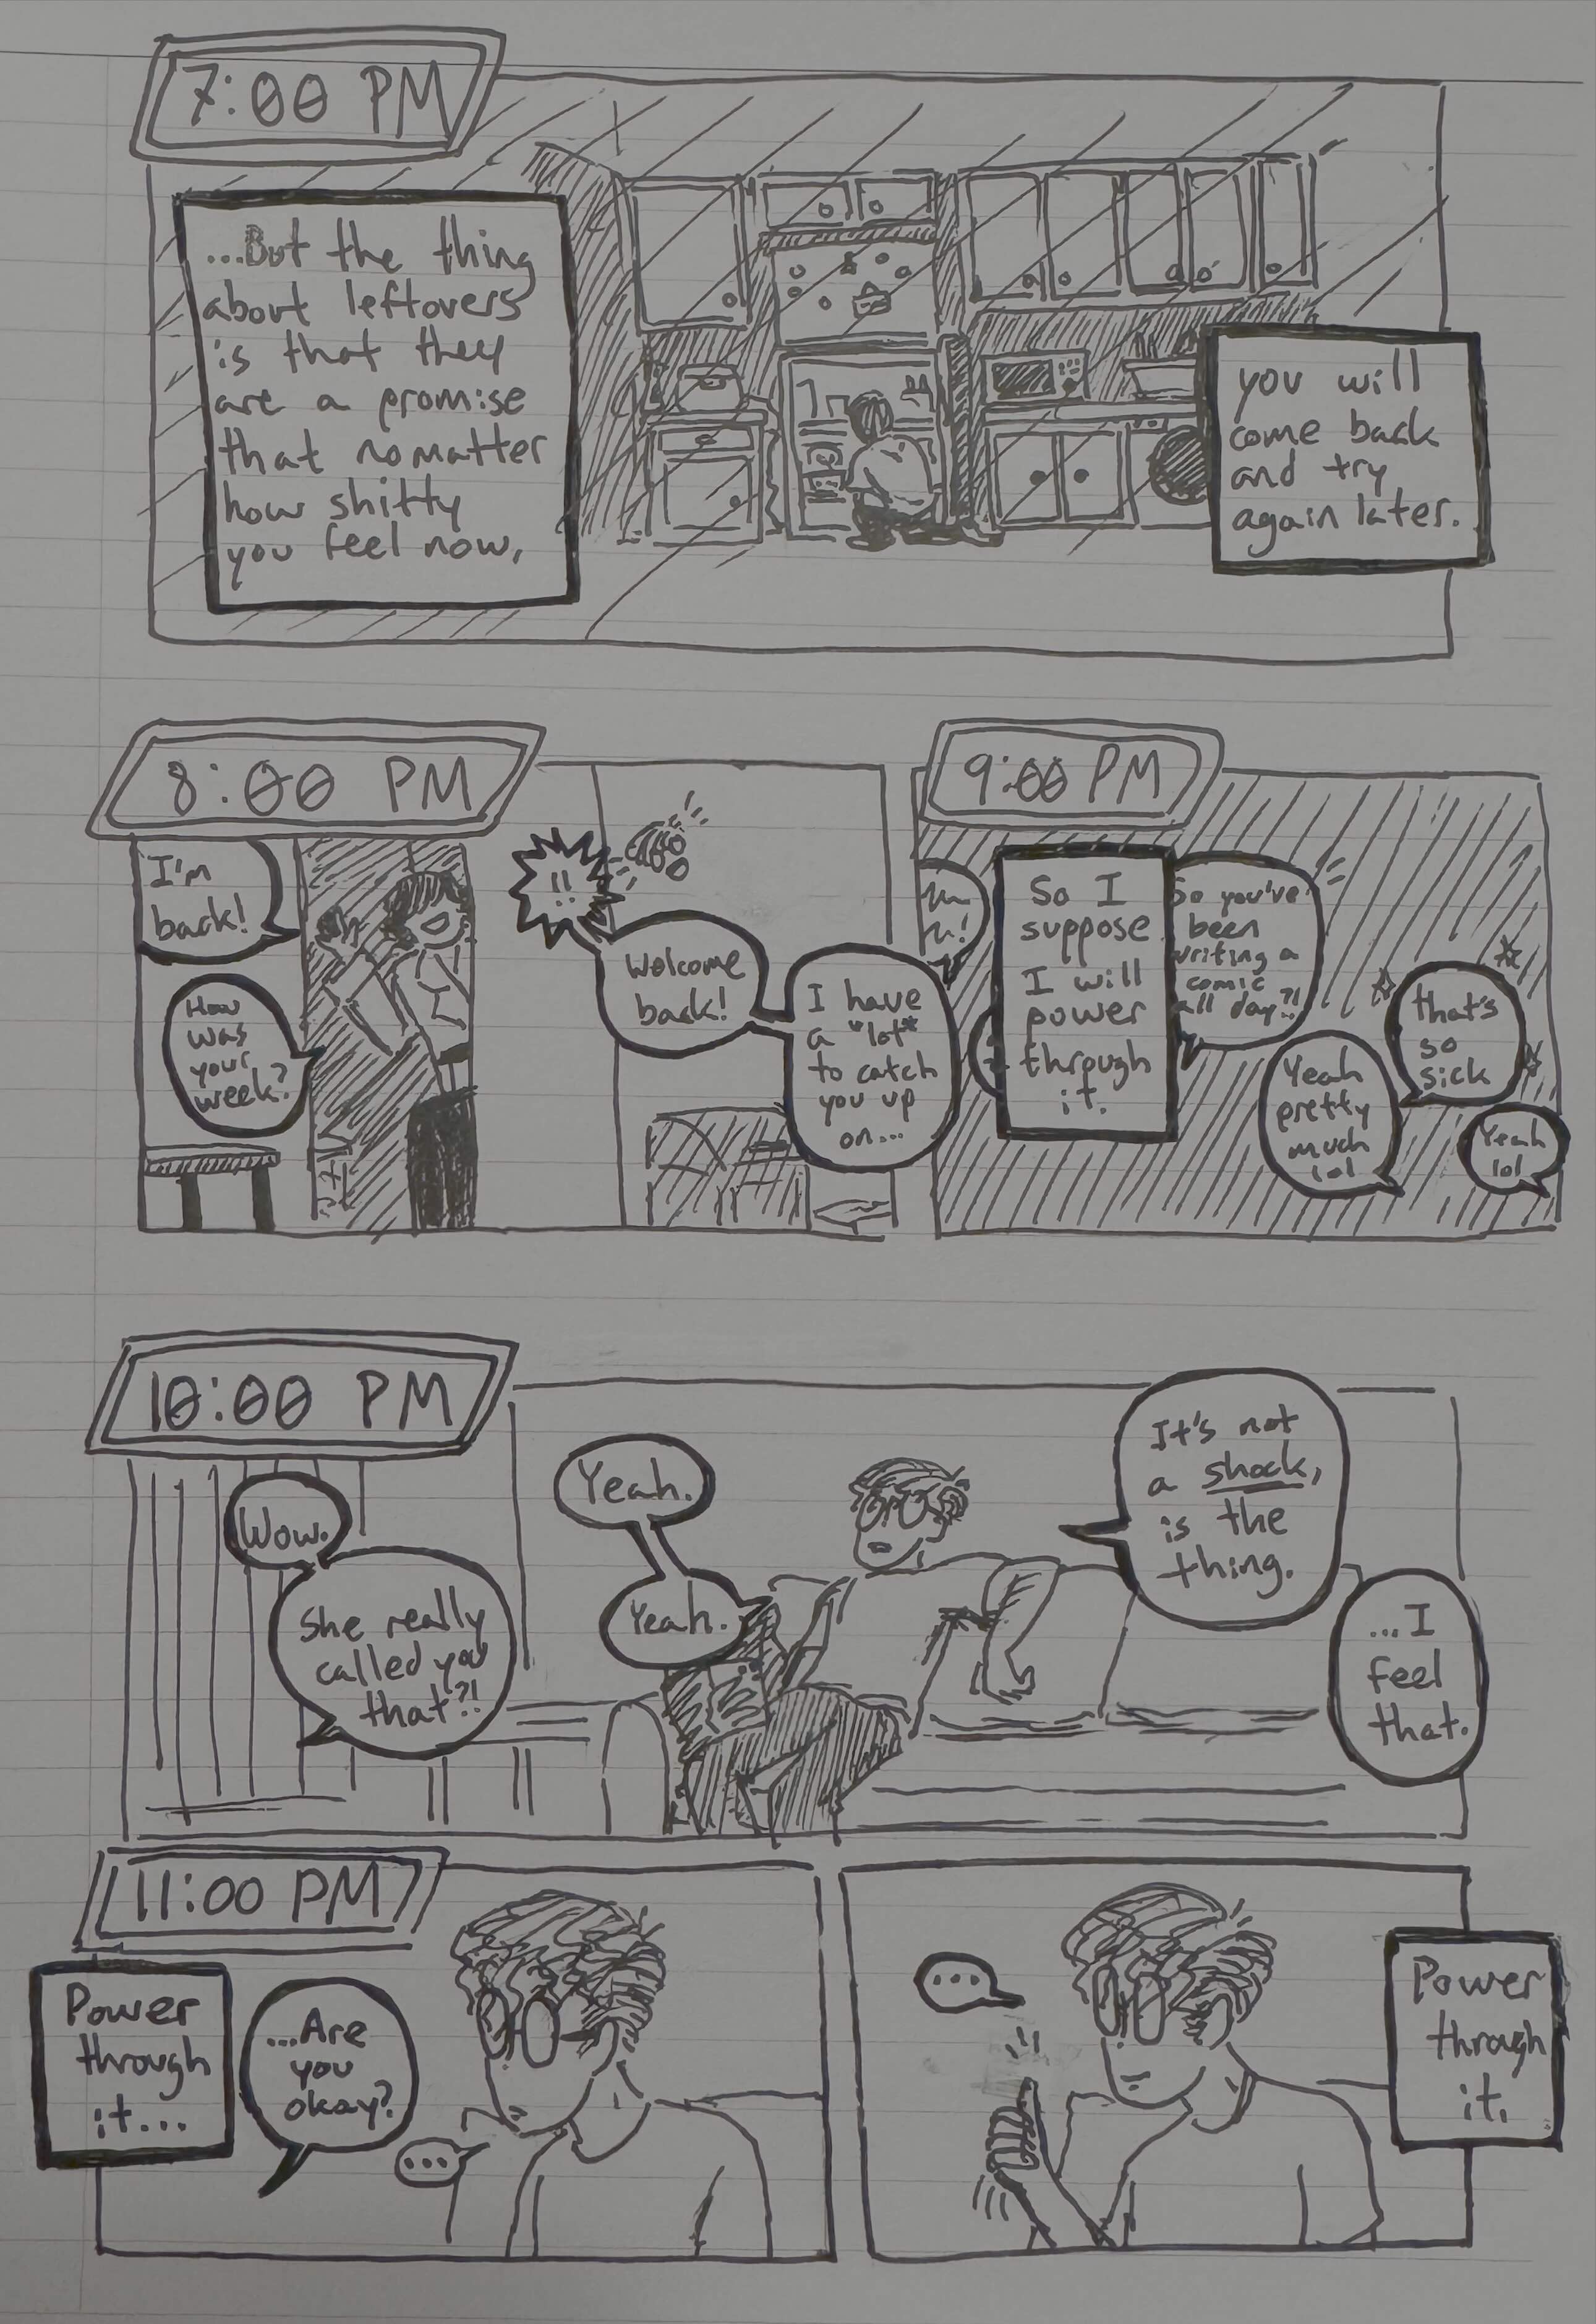 7:00 PM
...But the thing
about leftovers
is that they
are a promise
that no matter
how shitty
you feel now,
you will
come back
and try
again later.
8:00 PM
I'm
back!
How
was
your
week?
!!
Welcome
back!
I have
a *lot*
to catch
you up
on...
9:00 PM
So I
suppose
I will
power
through
it.
So you've
been
writing a
comic
all day?!
Yeah
pretty
much
lol
That's
so
sick
Yeah
lol
10:00 PM
Wow.
She really
called you
that?!
Yeah.
Yeah.
It's not
a shock,
is the
thing.
...I
feel
that.
11:00 PM
Power
through
it...
...Are
you
okay?
...
...
Power
through
it.